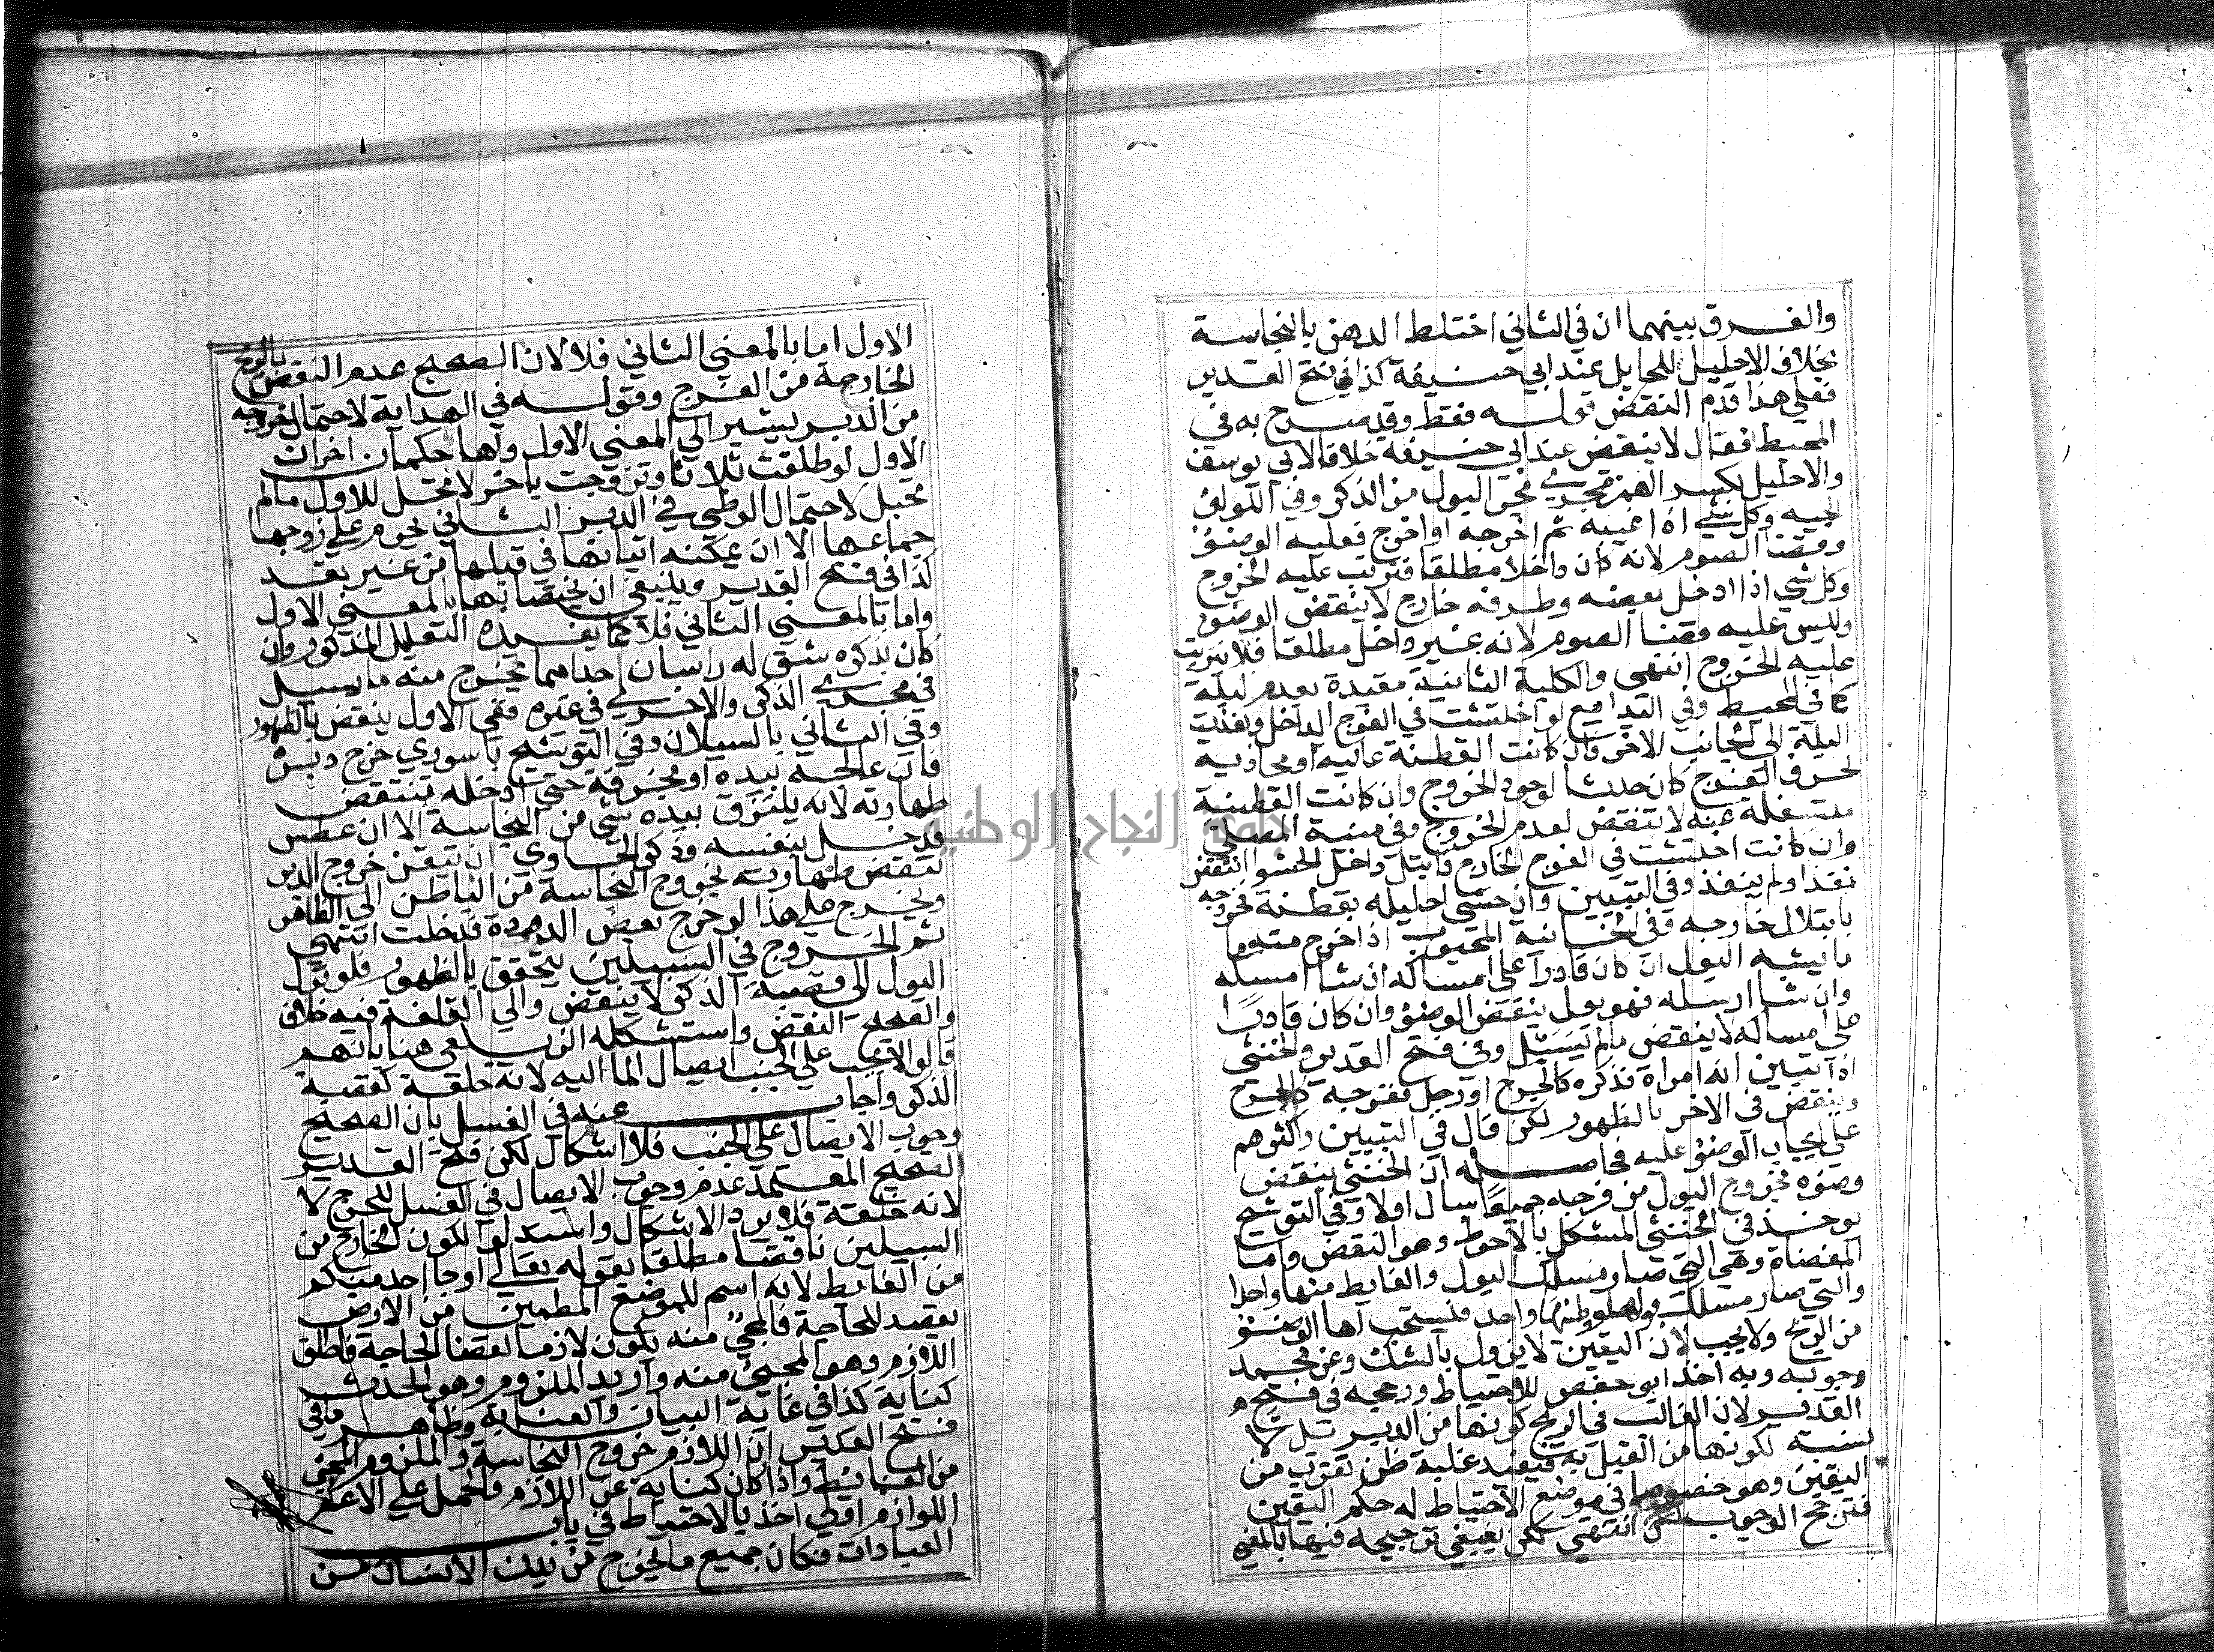 والفرق بينهما ان في الثاني اختلط الدهن بالنجاسة
بخلاف الاحليل للحايل عند ابي حنيفة كذا في فتح القدير
فعلي هذا قدم النقض قوله فقط وقد صرح به في
المحيط فقال لا ينقض عند ابي حنيفة خلافا لابي يوسف
والاحليل بكسر الهمزة مجري البول من الذكر وفي اللولو
لجيه وكل شي اذا غيبه ثم اخرجه او اخرج فعليه الوضوء
وقضا الصوم لانه كان داخلا مطلقا فترتب عليه الخروج
وكل شي اذا ادخل بعضه وطرفه خارج لا ينقض الوضوء
وليس عليه قضا الصوم لانه غير داخل مطلقا فلا يترتب
عليه الخروج انتهي والكلية الثانية مقيدة بعدم البلة
كما في المحيط وفي البدايع لو احتشت في الفرج الداخل ونفذت
البلة الي الجانب الاخر فان كانت القطنة عالية او محاذية
لحرف الفرج كان حدثا لوجود الخروج وان كانت القطنة
متسفلة عنه لا تنقض لعدم الخروج وفي منية المصلي
وان كانت احتشت في الفرج الخارج فابتل داخل الحشو انتقض
نفذ اولم ينفذ وفي التبيين وان حشي احليله بقطنة فخروجه
بابتلال خارجه وفي الخانية المجبوب اذا خرج منه ما
ما يشبه البول ان كان قادرا علي امساكه ان شا امسكه
وان شا ارسله فهو بول ينقض الوضوء وان كان قادرا
علي امساكه لا ينقض مالم يسيل وفي فتح القدير والخنثي
اذا تبين انه امراة فذكره كالجرح او رجل ففرجه كالجرح
وينقض في الاخر بالظهور لكن قال في التبيين واكثرهم
علي ايجاب الوضوء عليه فحاصله ان الخنثي ينقض
وضوه بخروج البول من فرجه جميعا سال اولا وفي التوشيح
يوخذ في الخنثي المشكل بالاحوط وهو النقض واما
المفضاة وهي التي صار مسلك البول والغايط منها واحدا
والتي صار مسلك بولها ووطئها واحد فيستحب لها الوضوء
من الريح ولا يجب لان اليقين لا يزول بالشك وعن محمد
وجوبه وبه اخذ ابو حفص للاحتياط ورجحه في فتح
القدير لان الغالب في الريح كونها من الدبر بل لا
نسبة لكونها من القبل به فيفيد غلبة ظن تقرب من
اليقين وهو خصوصا في موضع الاحتياط له حكم اليقين
فترجح الوجوب انتهي لكن ينبغي ترجيحه فيها بالمعني
الاول اما بالمعني الثاني فلا لان الصحيح عدم النقض بالريح
الخارجة من الفرج وقوله في الهداية لاحتمال خروجه
من الدبر يشير الي المعني الاول ولها حكمان اخران
الاول لو طلقت ثلاثا وتزوجت باخر لا تحل للاول مالم
تحبل لاحتمال الوطي في الدبر الثاني يحرم علي زوجها
جماعها الا ان يمكنه اتيانها في قبلها من غير تعد
كذا في فتح القدير وينبغي ان يختصا بها بالمعني الاول
واما بالمعني الثاني فلا كما يفيده التعليل المذكور وان
كان بذكره شق له راسان احدهما يخرج منه ما يسيل
في مجري الذكر والاخري في غيره ففي الاول ينقض بالظهور
وفي الثاني بالسيلان وفي التوشيح باسوري خرج دبره
فان عالجه بيده او بخرقة حتي ادخله تنتقض
طهارته لانه يلتزق بيده شي من النجاسة الا ان عطس
فدخل بنفسه وذكر الحلواني ان تيقن خروج الدبر
تنقض طهارته بخروج النجاسة من الباطن الي الظاهر
ويخرج علي هذا لو خرج بعض الدودة فدخلت انتهي
ثم الخروج في السبيلين يتحقق بالظهور فلو نزل
البول الي قصبة الذكر لا ينقض والي القلفة فيه خلاف
والصحيح النقض واستشكله الزيلعي هنا بانهم
قالوا لا يجب علي الجنب ايصال الما اليه لانه خلقة كقصبة
الذكر واجاب عنه في الغسل بان الصحيح
وجوب الايصال علي الجنب فلا اشكال لكن فتح القدير
الصحيح المعتمد عدم وجوب الايصال في الغسل للحرج لا
لانه خلقة فلا يرد الاشكال واستدلوا لكون الخارج من
السبيلين ناقضا مطلقا بقوله تعالي او جا احد منكم
من الغايط لانه اسم للموضع المطمين من الارض
يقصد للحاجة فالمجي منه يكون لازما لقضا الحاجة فاطلق
اللازم وهو المجيء منه واريد الملزوم وهو الحدث
كناية كذا في غاية البيان والعناية وظاهر ما في
فتح القدير ان اللازم خروج النجاسة والملزوم المجي
من الغايط واذا كان كناية عن اللازم فالحمل علي الاعم
اللوازم اولي اخذ بالاحتياط في باب
العبادات فكان جميع ما يخرج من بدن الانسان من
جامعة النجاح الوطنية